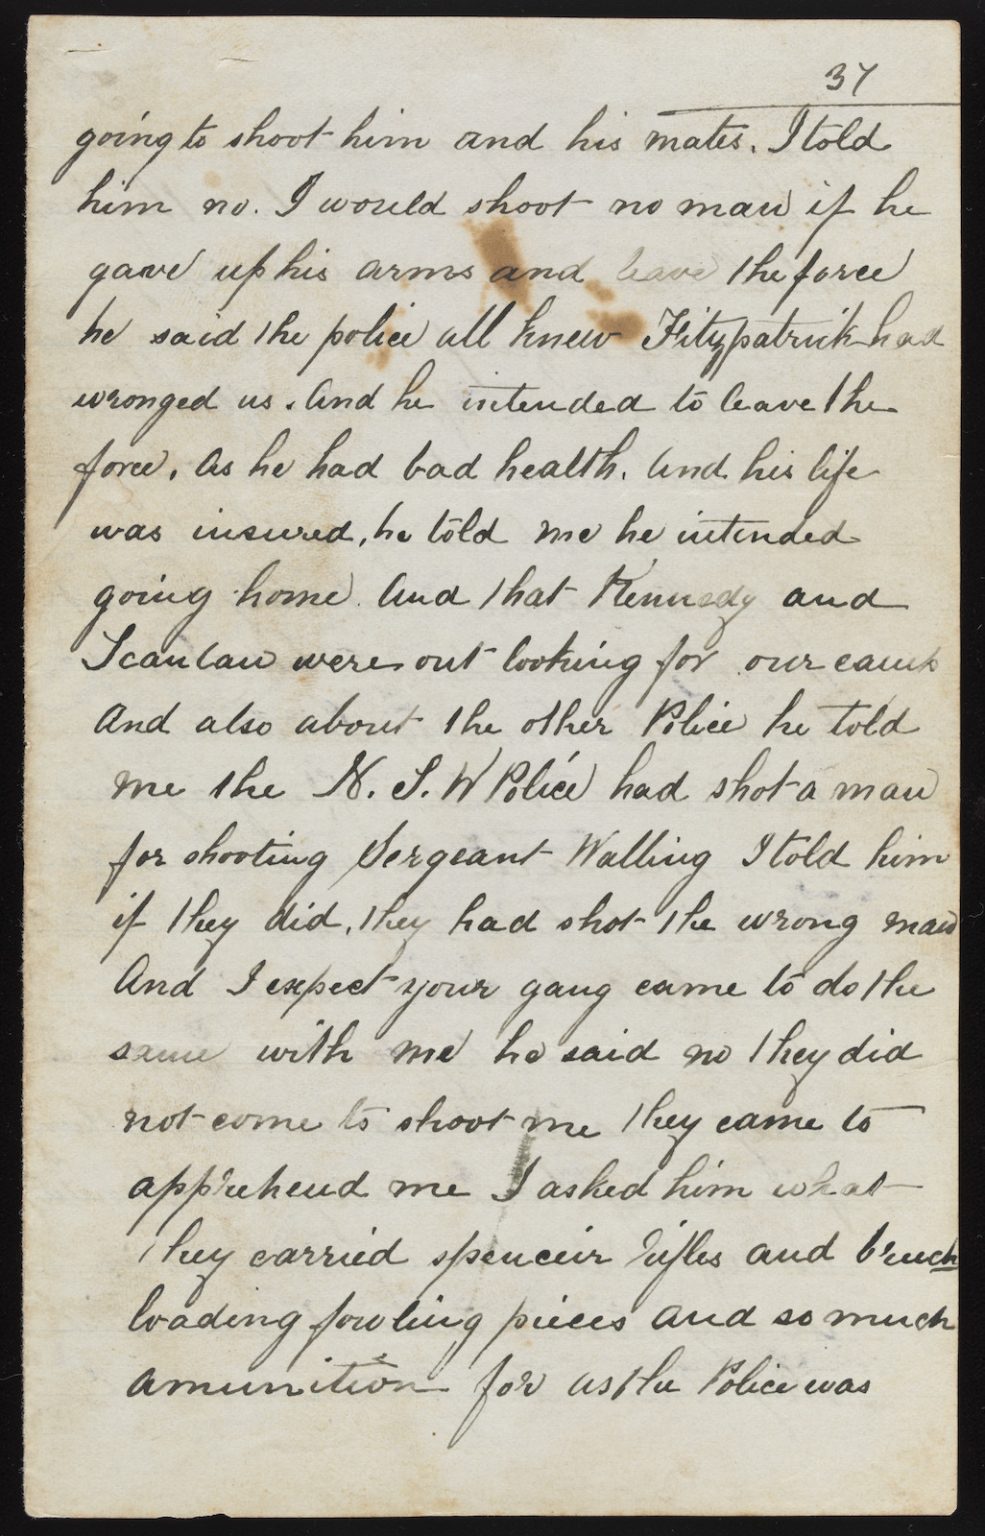 37
going to shoot him and his mates. I told
him no. I would shoot no man if he
gave up his arms and leave the force
he said the police all knew Fitzpatrick had
wronged us. And he intended to leave the
force. As he had bad health. And his life
was insured, he told me he intended
going home. And that Kennedy and
Scanlan were out looking for our camp
And also about the other Police he told
me the N. S. W Police had shot a man
for shooting Sergeant Walling I told him
if they did, they had shot the wrong man
And I expect your gang came to do the
same with me he said no they did
not come to shoot me they came to
apprehend me I asked him what
they carried spenceir rifles and breech
loading fowling pieces and so much
amunition for as the Police was